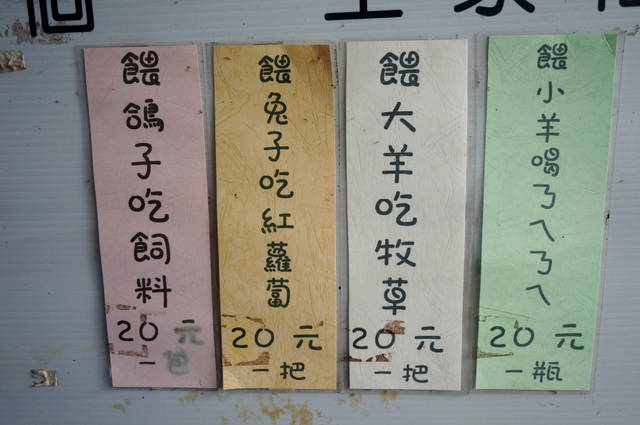 餵鴿子吃飼料
20元
一包
餵兔子吃紅蘿蔔
20元
一把
餵大羊吃牧草
20元
一把
餵小羊喝ㄋㄟㄋㄟ
20元
一瓶